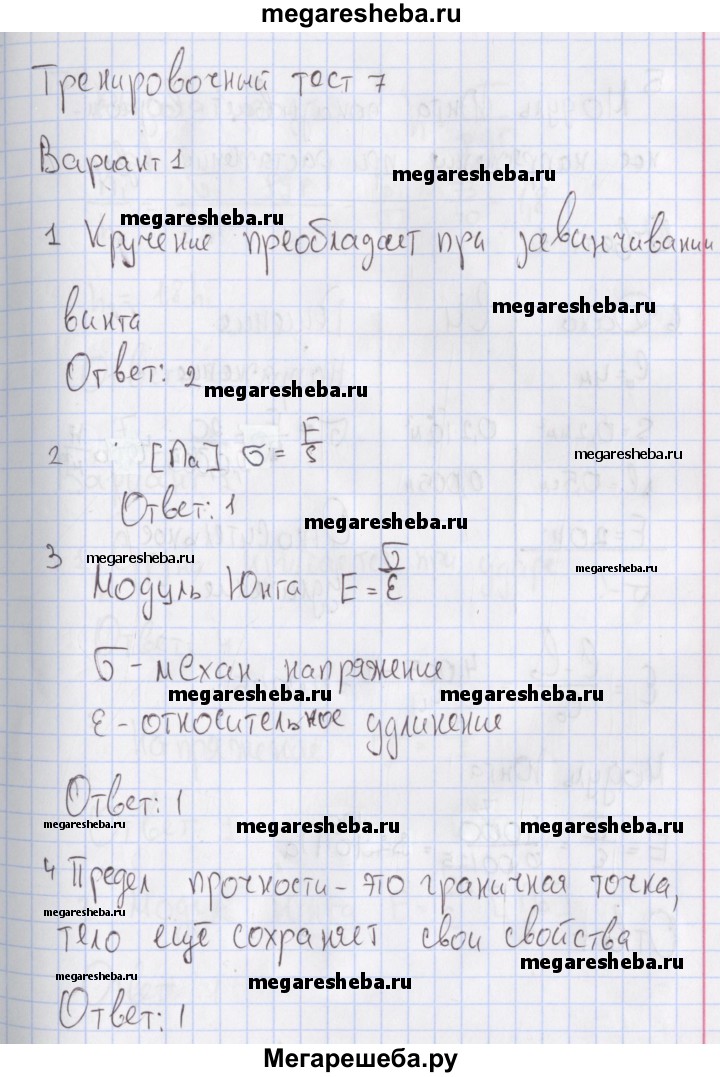 megaresheba.ru
Тренировочный тест 7
Вариант 1
megaresheba.ru
megaresheba.ru
1 Кручение преобладает при завинчивании
megaresheba.ru
винта
Ответ: 2
megaresheba.ru
2 [Па] σ = F/S
megaresheba.ru
Ответ: 1
megaresheba.ru
3
megaresheba.ru
megaresheba.ru
Модуль Юнга E = σ/ε
σ - механ. напряжение
megaresheba.ru megaresheba.ru
ε - относительное удлинение
Ответ: 1
megaresheba.ru megaresheba.ru megaresheba.ru
4 Предел прочности - это граничная точка,
megaresheba.ru
тело ещё сохраняет свои свойства
megaresheba.ru
megaresheba.ru megaresheba.ru
Ответ: 1
Мегарешеба.ру